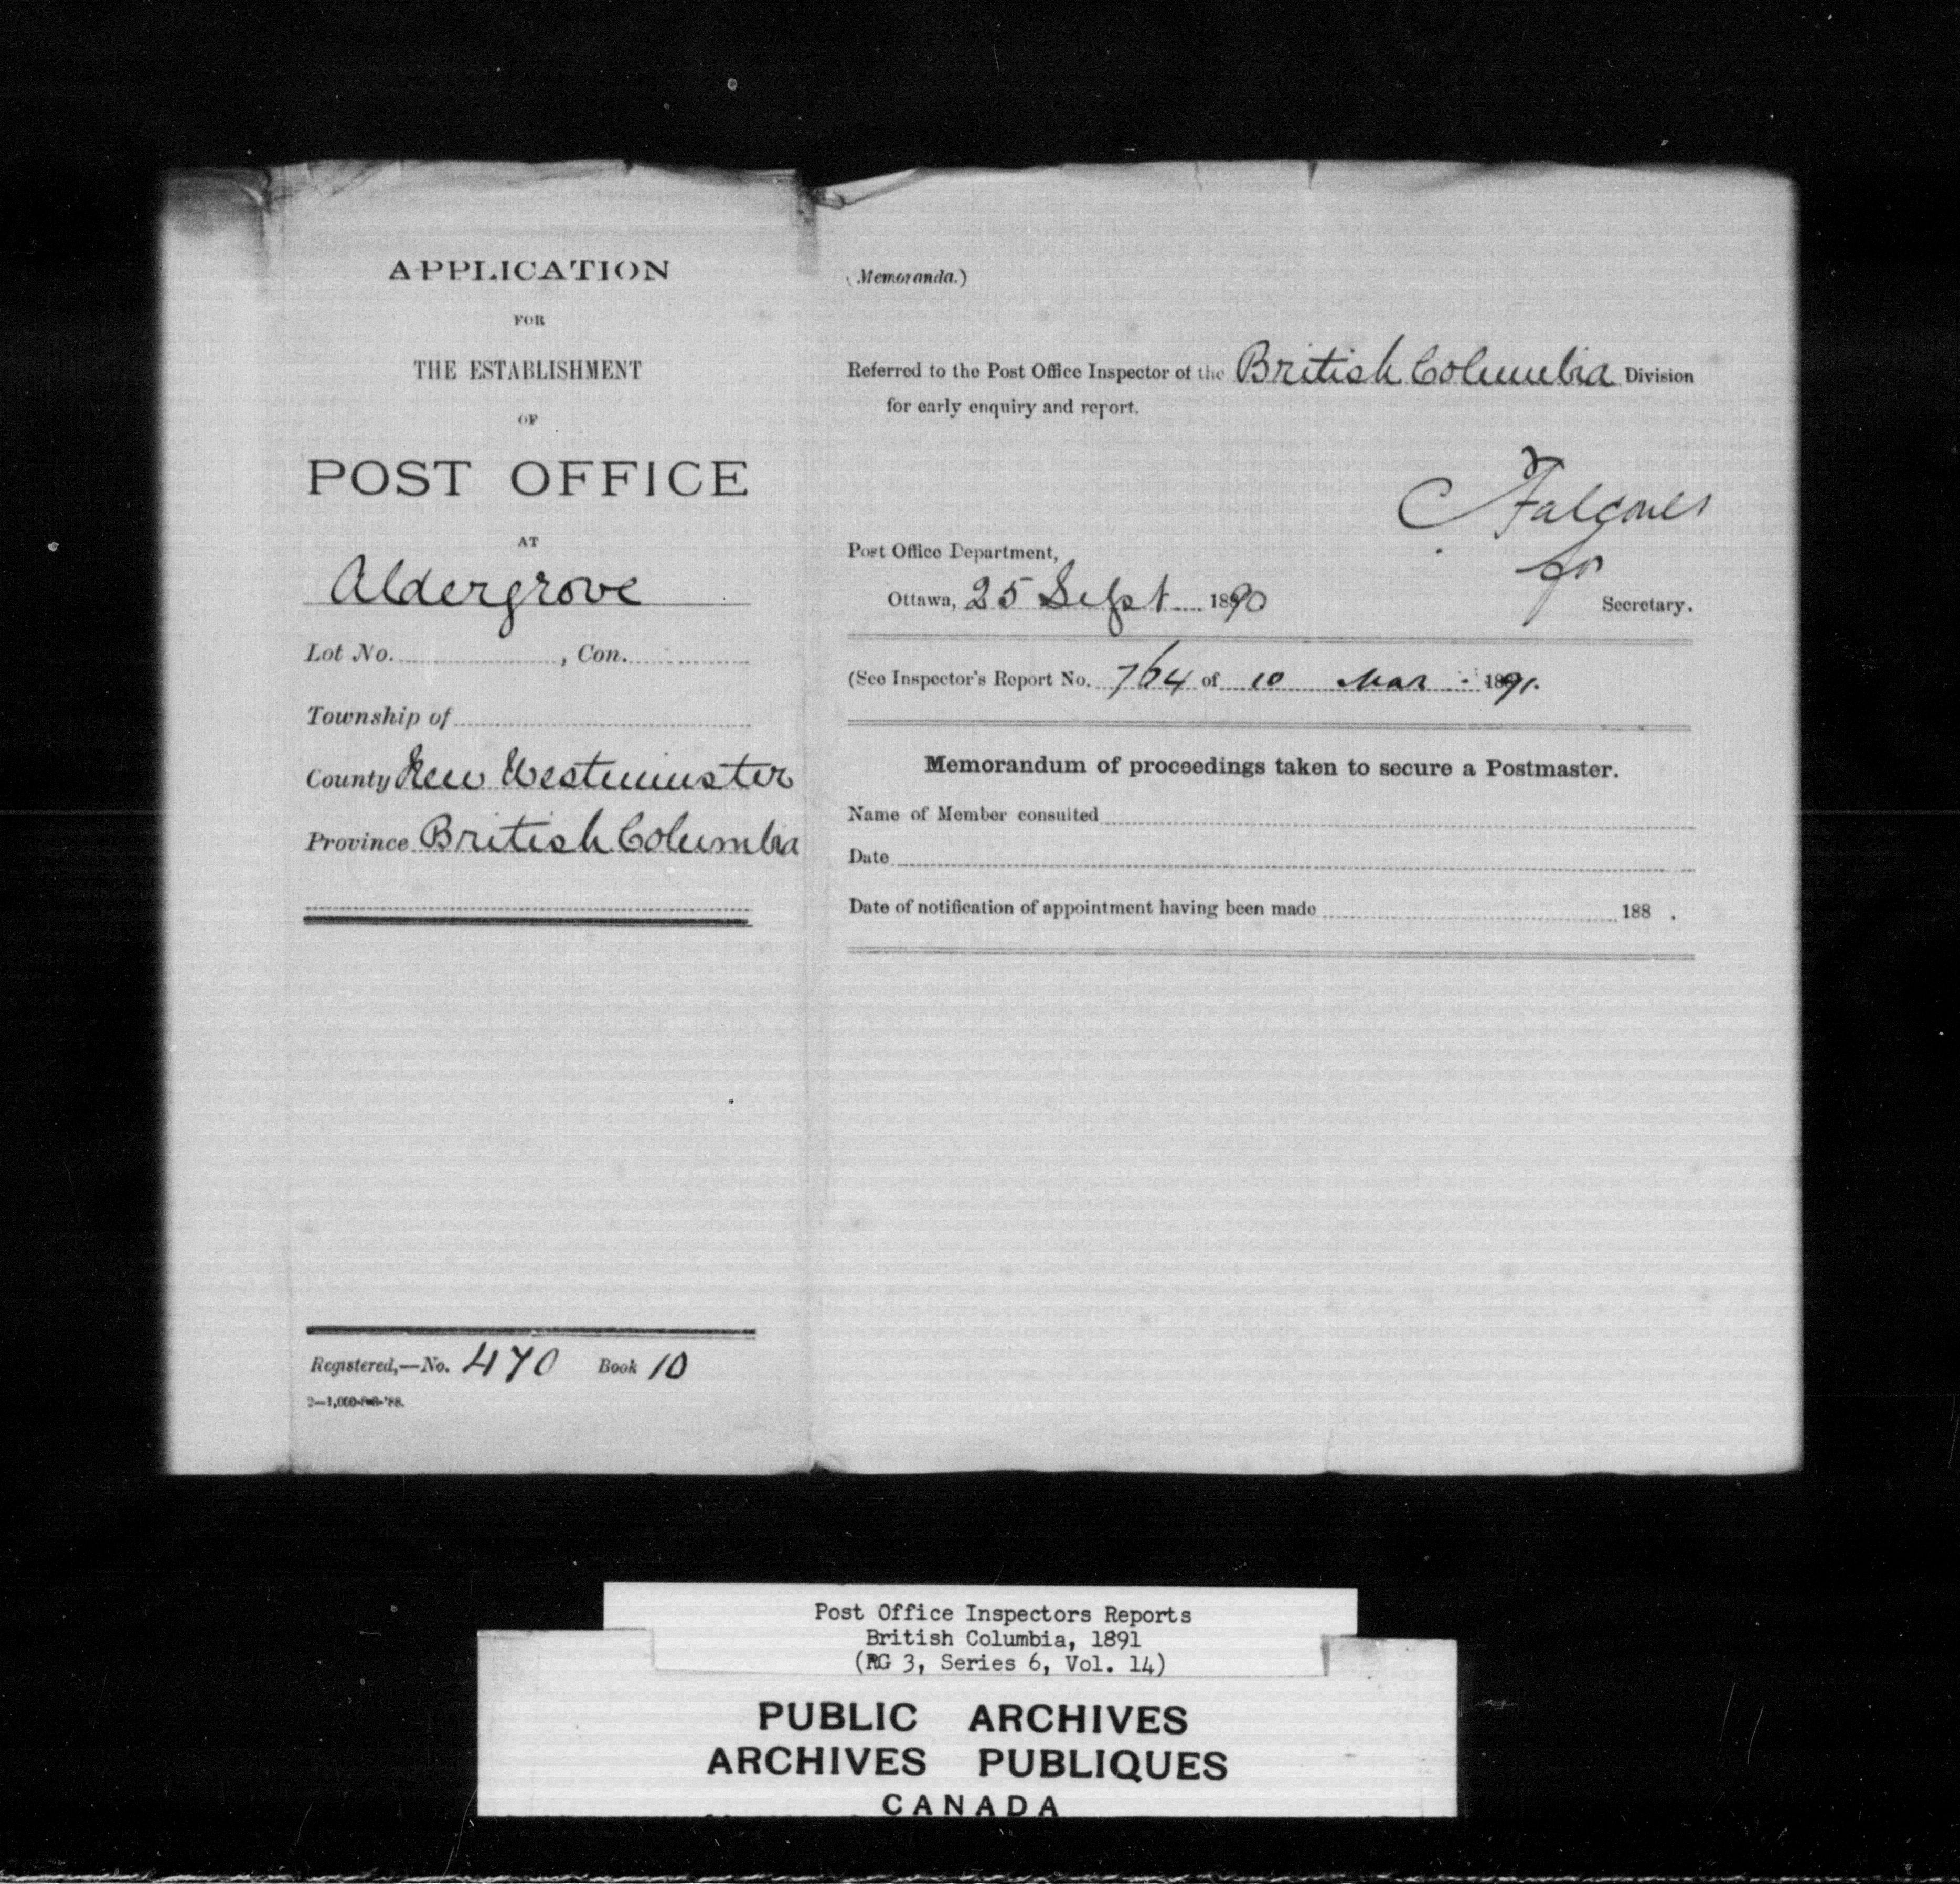 APPLICATION
FOR
THE ESTABLISHMENT
OF
POST OFFICE
AT
Aldergrove
Lot No. , Con.
Township of
County New Westminster
Province British Columbia
Registered,—No. 470 Book 10
(Memoranda.)
Referred to the Post Office Inspector of the British Columbia Division
for early enquiry and report.
for
Post Office Department,
Ottawa, 25 Sept 1890
Secretary.
(See Inspector's Report No. 764 of 10 Mar 1891.
Memorandum of proceedings taken to secure a Postmaster.
Name of Member consulted
Date
Date of notification of appointment having been made 188 .
Post Office Inspectors Reports
British Columbia, 1891
(RG 3, Series 6, Vol. 14)
PUBLIC ARCHIVES
ARCHIVES PUBLIQUES
CANADA